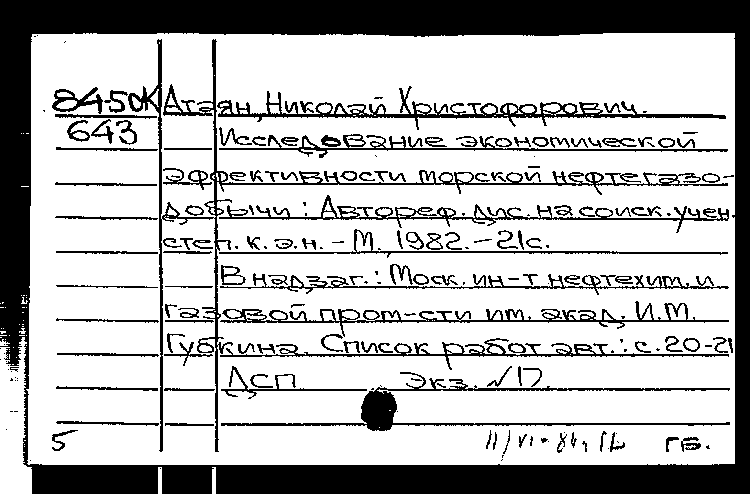 84-5ОК Атаян, Николай Христофорович.
643 Исследование экономической
эффективности морской нефтегазо-
добычи : Автореф. дис. на соиск. учен.
степ. к. э. н. - М., 1982. - 21 с.
В надзаг.: Моск. ин-т нефтехим. и
газовой пром-сти им. акад. И.М.
Губкина. Список работ авт.: с. 20-21
ДСП Экз. №
5 11/VI-84, ГБ.